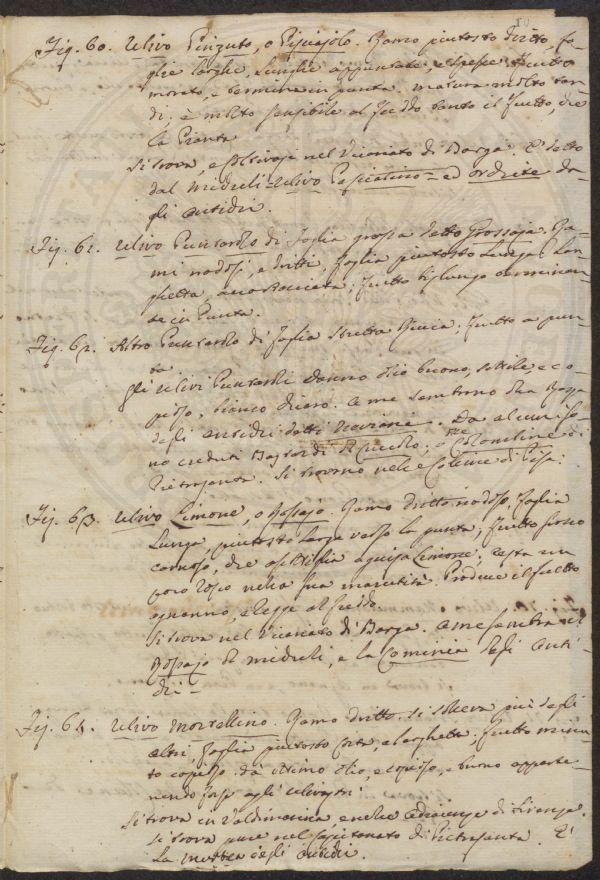 Fig. 60. Ulivo Pinzuto, o Pisciajolo. Ramo piutosto dritto, fo-
glie larghe, lunghe appuntate, e spesse. Frutto
morato, e termina in punta. matura molto tar-
di: è molto sensibile al freddo tanto il frutto, che
la Pianta.
Si trova, e coltivasi nel Vicariato di Barga. È detto
dal Micheli = Ulivo = ed orchite da-
gli antichi.
Fig. 61. Ulivo Puntarolo di foglia grossa detto Grossaja. Ra-
mi nodosi, e dritti, foglia piutosto larga, lun-
ghetta, frutto bislungo terminan-
te in Punta.
Fig. 62. Altro Puntarolo di foglia stretta Rivia; frutto a pun-
ta
gli Ulivi Puntaroli danno olio buono, sottile e co-
pioso, bianco chiaro. a me sembrano sia Razza
degli antichi detti. Da alcuni so-
no creduti Bastardi Rizzuolo, o Colombine di
Pietrasanta. Si trovano nelle Colline di Pisa.
Fig. 63. Ulivo Limone, o Rossajo. Ramo dritto nodoso, foglia
lunga, piutosto larga verso la punta; frutto grosso
carnoso, che assottiglia a guisa Limone; resta un
poco rosso nella sua maturità. Produce il frutto
ognanno, e regge al freddo.
Si trova nel Vicariato di Barga. a me sembra il
Rossajo di Micheli, e la Cominia degli Anti-
chi.
Fig. 64. Ulivo mortellino. Ramo dritto. si solleva più degli
altri, foglia piutosto corta, e larghetta; frutto minu-
to copioso. dà ottimo olio, e copioso, e buono apparte-
nendo forse agli ulivastri.
Si trova in Valdinievina, e nelle adiacenze di Firenze.
si trova pure nel Capitanato di Pietrasanta. È
la murtea degli antichi.